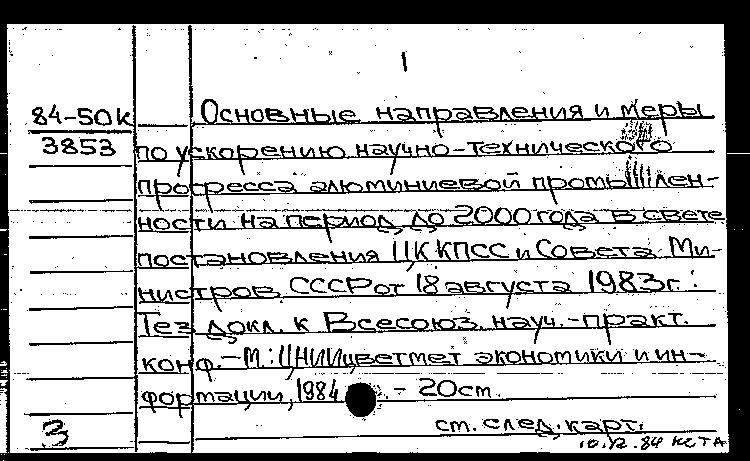 1
84-50к Основные направления и меры
3853 по ускорению научно-технического
прогресса алюминиевой промышлен-
ности на период до 2000 года в свете
постановления ЦК КПСС и Совета Ми-
нистров СССР от 18 августа 1983г.:
Тез. докл. к Всесоюз. науч.-практ.
конф.-М.: ЦНИИцветмет экономики и ин-
формации, 1984. - 20см.
3 ст. след. карт.
10.12.84 КСТА